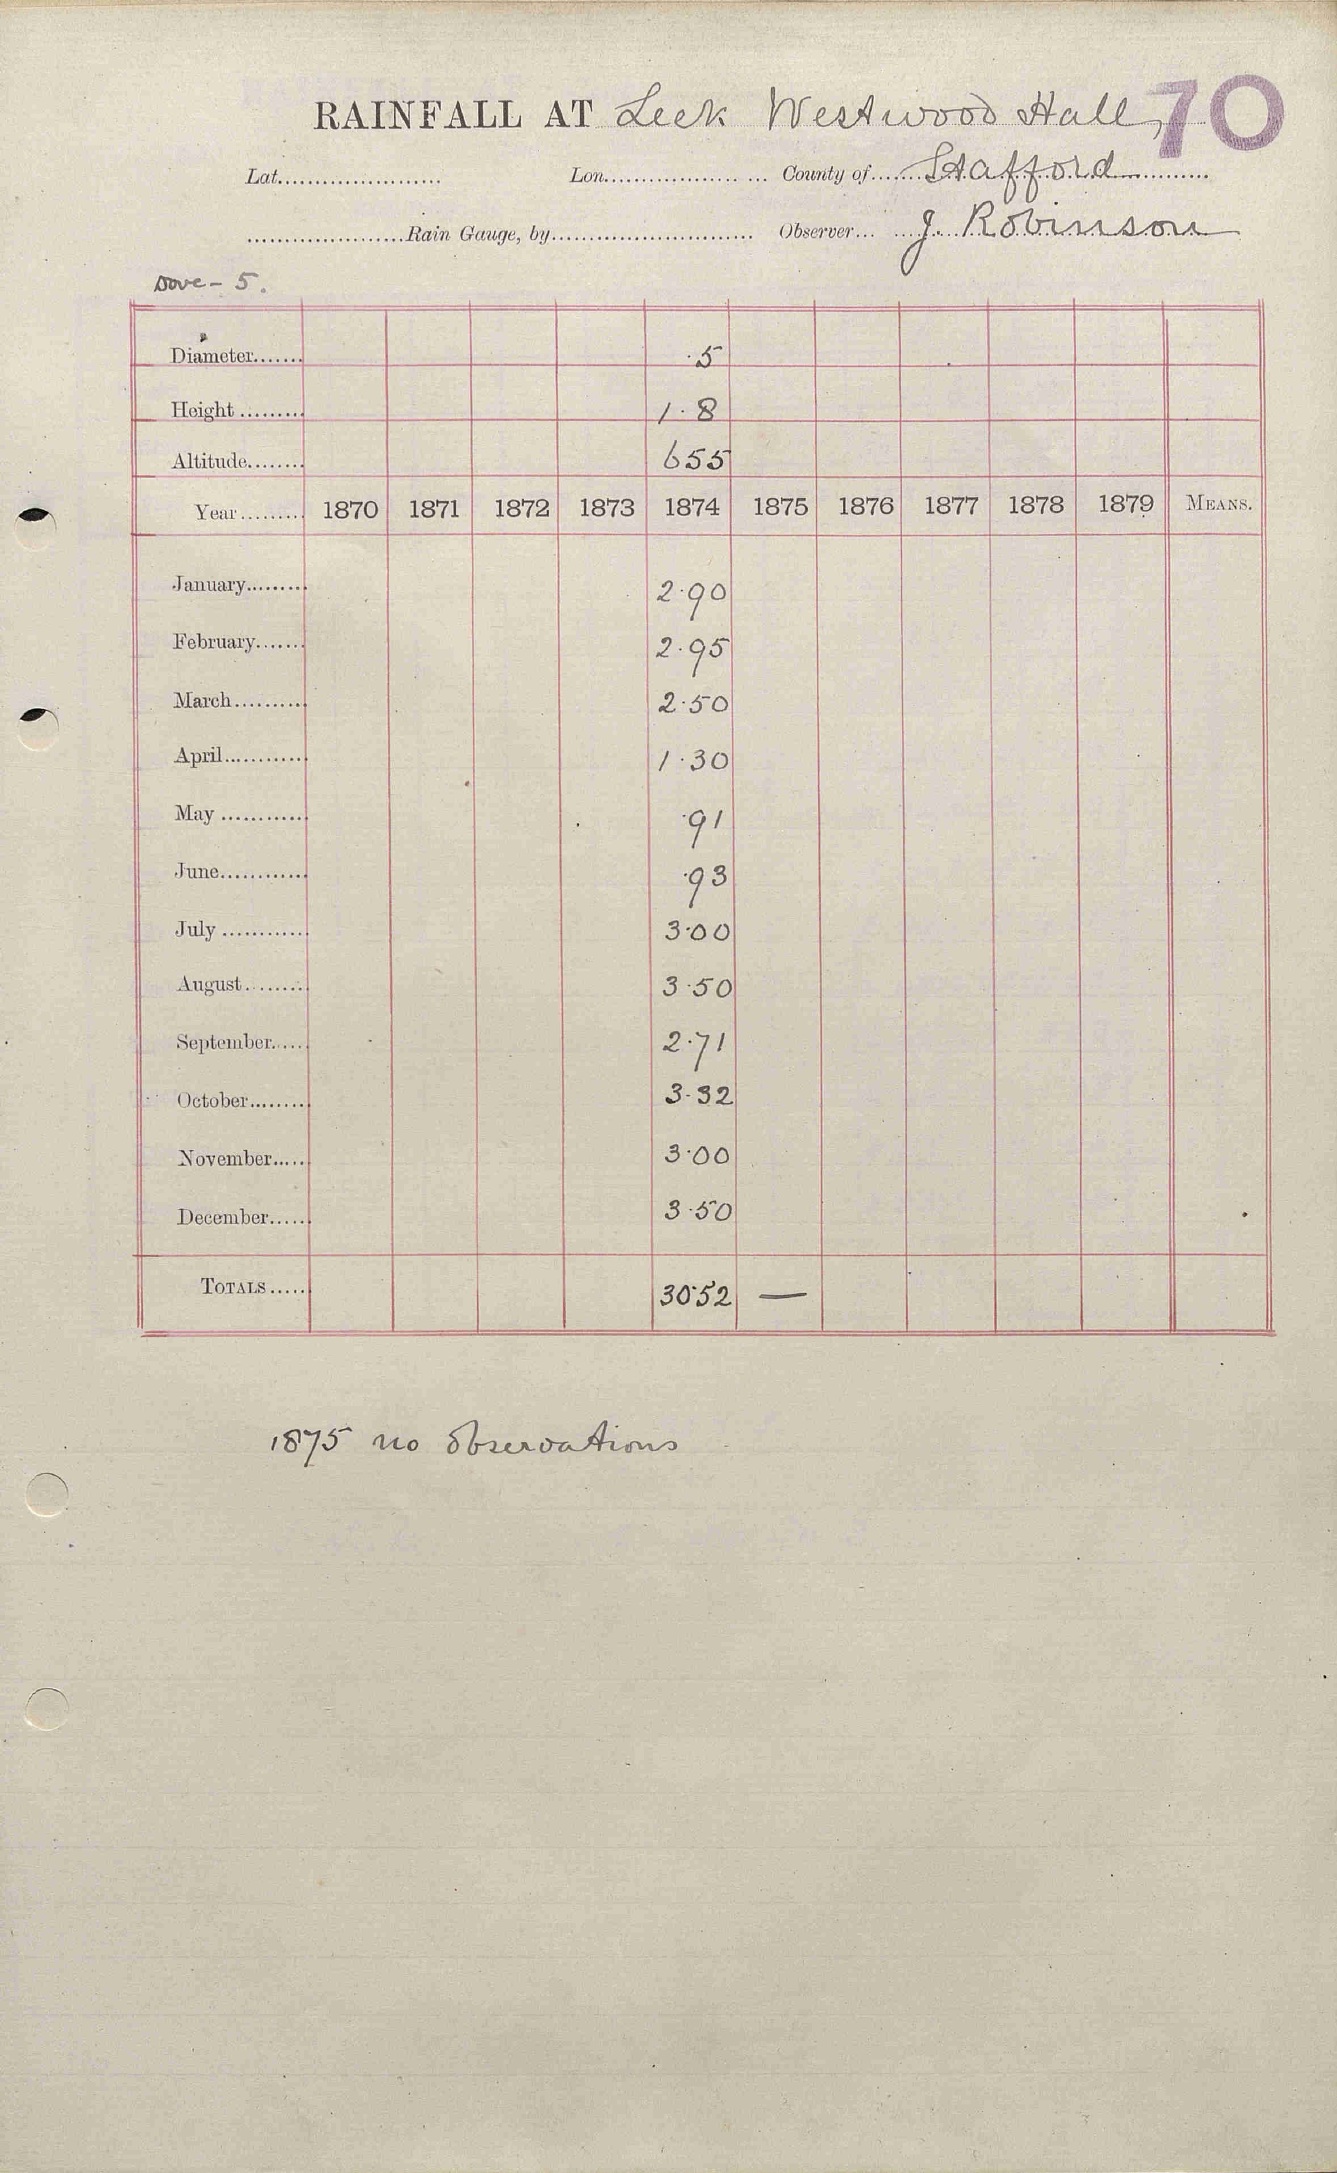 RAINFALL AT Leek Westwood Hall, 70
Lat...................... Lon.................. ... County of.......Stafford............
.....................Rain Gauge, by........................... Observer... ....J. Robinson
Dove - 5.
Diameter....... ·5
Height ......... 1·8
Altitude........ 655
Year......... 1870 1871 1872 1873 1874 1875 1876 1877 1878 1879 MEANS.
January......... 2·90
February....... 2·95
March.......... 2·50
April............ 1·30
May ............ ·91
June............ ·93
July ............ 3·00
August......... 3·50
September...... 2·71
October........ 3·32
November..... 3·00
December..... 3·50
TOTALS..... 30·52 —
1875 no observations